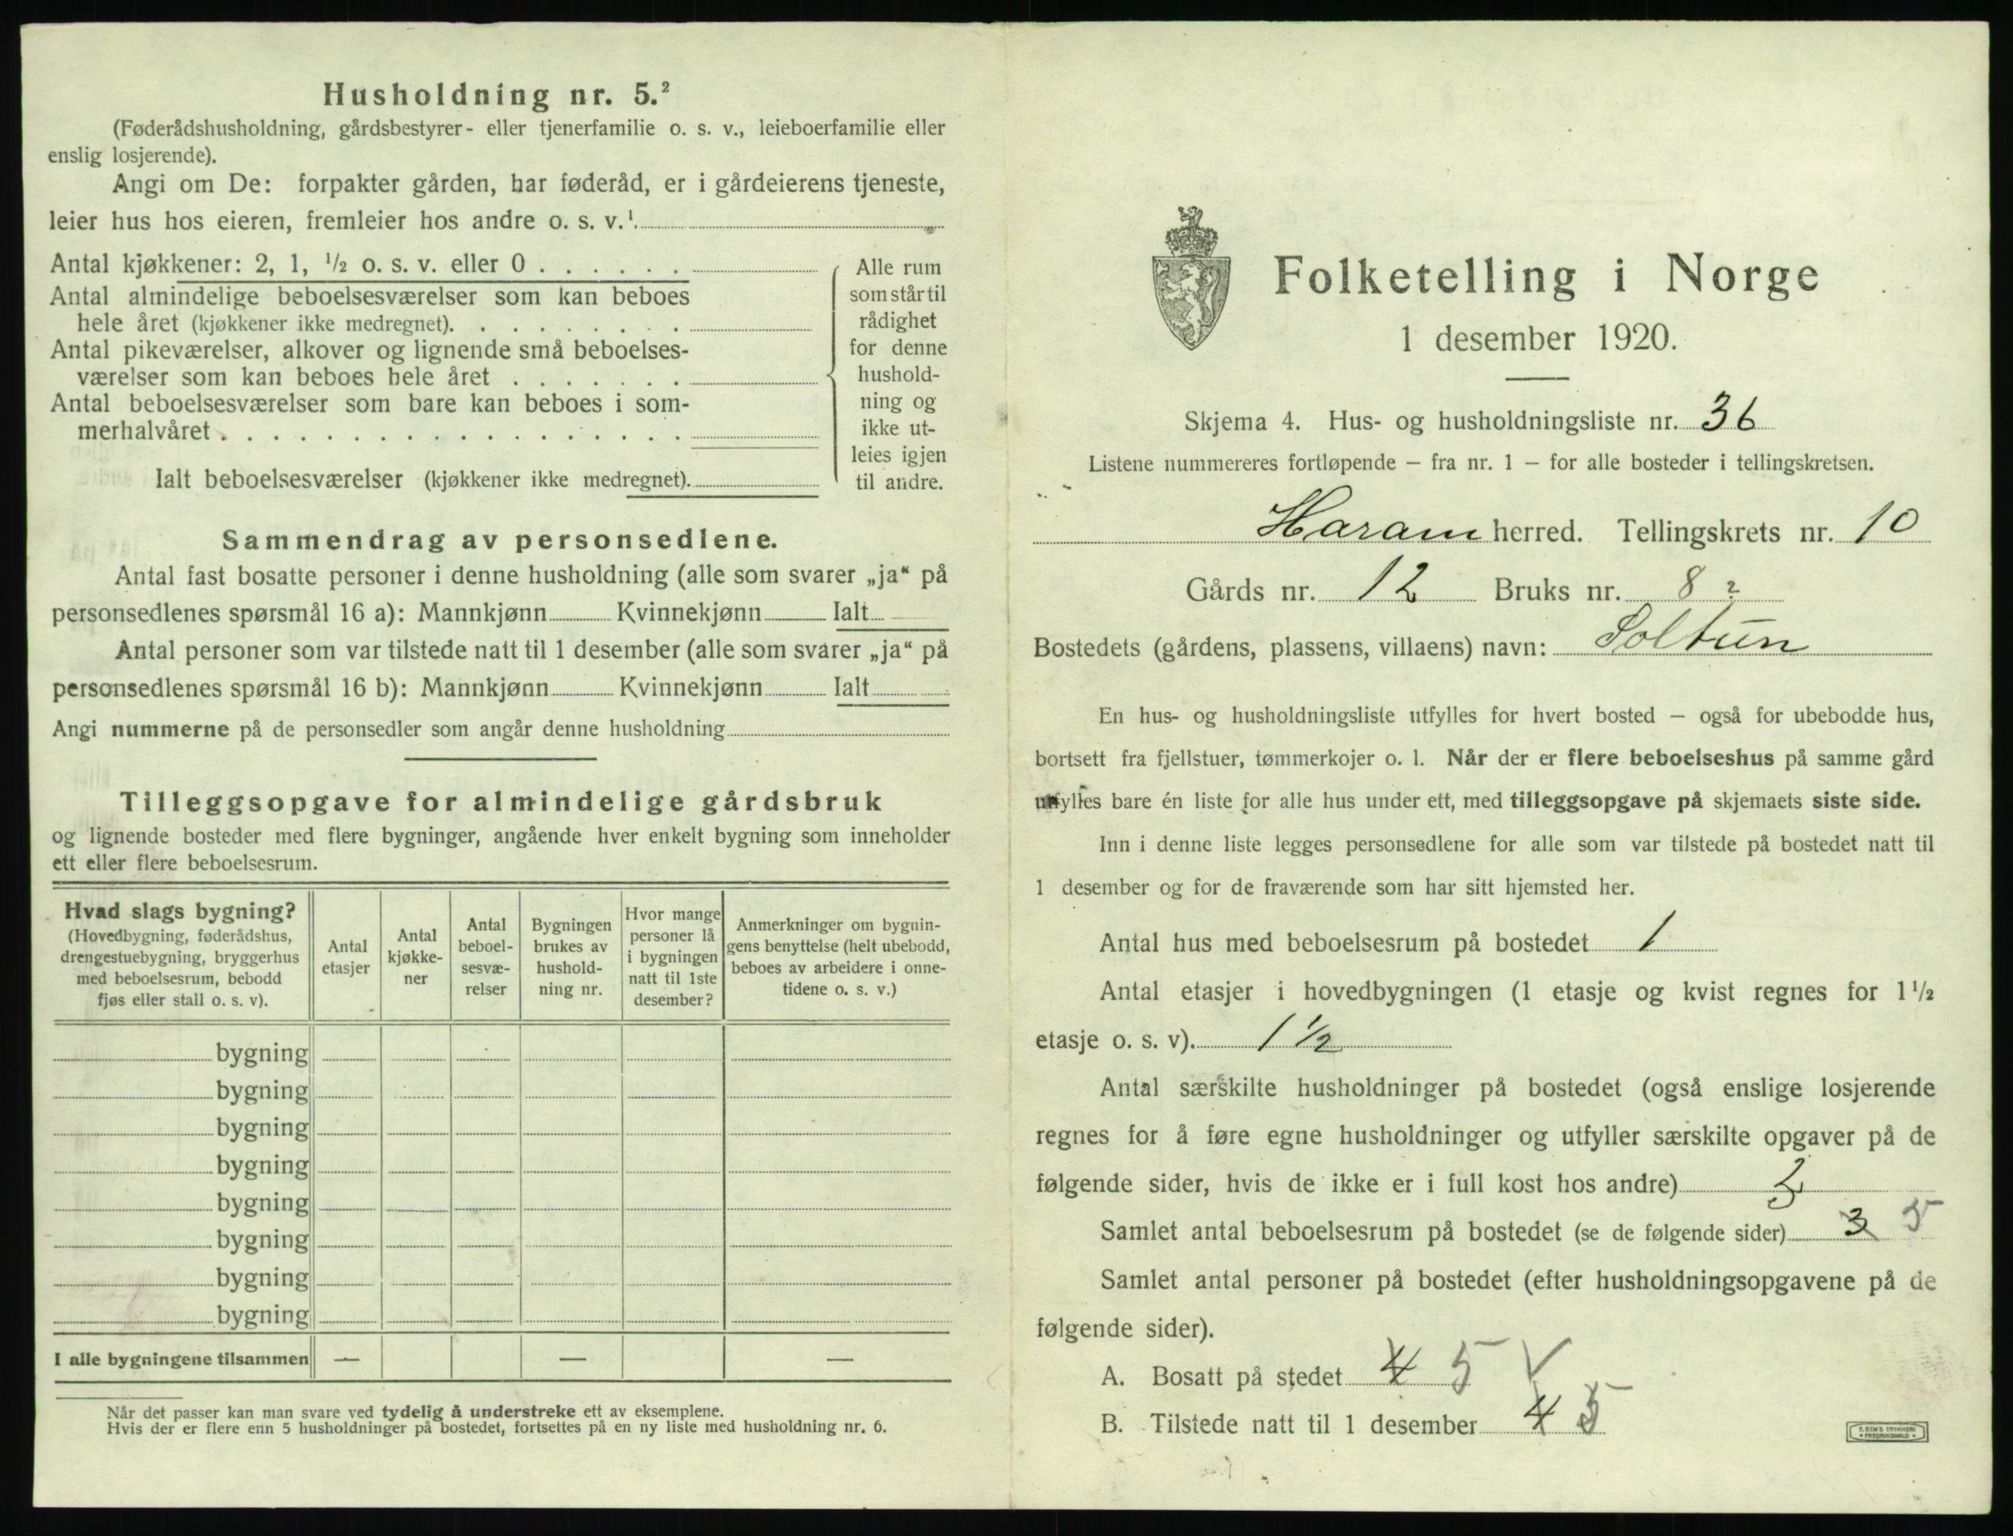 Husholdning nr. 5.²
(Føderådshusholdning, gårdsbestyrer- eller tjenerfamilie o. s. v., leieboerfamilie eller
enslig losjerende).
Angi om De: forpakter gården, har føderåd, er i gårdeierens tjeneste,
leier hus hos eieren, fremleier hos andre o. s. v.¹
Antal kjøkkener: 2, 1, ½ o. s. v. eller 0 . . . . . .
Antal almindelige beboelsesværelser som kan beboes
hele året (kjøkkener ikke medregnet). . . . . . . . .
Antal pikeværelser, alkover og lignende små beboelses-
værelser som kan beboes hele året . . . . . . .
Antal beboelsesværelser som bare kan beboes i som-
merhalvåret . . . . . . . . . . . . . . . . . .
Ialt beboelsesværelser (kjøkkener ikke medregnet).
Alle rum
som står til
rådighet
for denne
hushold-
ning og
ikke ut-
leies igjen
til andre.
Sammendrag av personsedlene.
Antal fast bosatte personer i denne husholdning (alle som svarer „ja“ på
personsedlenes spørsmål 16 a): Mannkjønn Kvinnekjønn Ialt
Antal personer som var tilstede natt til 1 desember (alle som svarer „ja“ på
personsedlenes spørsmål 16 b): Mannkjønn Kvinnekjønn Ialt
Angi nummerne på de personsedler som angår denne husholdning
Tilleggsopgave for almindelige gårdsbruk
og lignende bosteder med flere bygninger, angående hver enkelt bygning som inneholder
ett eller flere beboelsesrum.
Hvad slags bygning?
(Hovedbygning, føderådshus,
drengestuebygning, bryggerhus
med beboelsesrum, bebodd
fjøs eller stall o. s. v).
Antal
etasjer
Antal
kjøkke-
ner
Antal
beboel-
sesvæ-
relser
Bygningen
brukes av
hushold-
ning nr.
Hvor mange
personer lå
i bygningen
natt til 1ste
desember?
Anmerkninger om bygnin-
gens benyttelse (helt ubebodd,
beboes av arbeidere i onne-
tidene o. s. v.)
bygning
bygning
bygning
bygning
bygning
bygning
bygning
bygning
I alle bygningene tilsammen — — —
Når det passer kan man svare ved tydelig å understreke ett av eksemplene.
Hvis der er flere enn 5 husholdninger på bostedet, fortsettes på en ny liste med husholdning nr. 6.
Folketelling i Norge
1 desember 1920.
Skjema 4. Hus- og husholdningsliste nr. 36
Listene nummereres fortløpende – fra nr. 1 – for alle bosteder i tellingskretsen.
Haram herred. Tellingskrets nr. 10
Gårds nr. 12 Bruks nr. 8 ?
Bostedets (gårdens, plassens, villaens) navn: Soltun
En hus- og husholdningsliste utfylles for hvert bosted – også for ubebodde hus,
bortsett fra fjellstuer, tømmerkojer o. l. Når der er flere beboelseshus på samme gård
utfylles bare én liste for alle hus under ett, med tilleggsopgave på skjemaets siste side.
Inn i denne liste legges personsedlene for alle som var tilstede på bostedet natt til
1 desember og for de fraværende som har sitt hjemsted her.
Antal hus med beboelsesrum på bostedet 1
Antal etasjer i hovedbygningen (1 etasje og kvist regnes for 1½
etasje o. s. v). 1½
Antal særskilte husholdninger på bostedet (også enslige losjerende
regnes for å føre egne husholdninger og utfyller særskilte opgaver på de
følgende sider, hvis de ikke er i full kost hos andre)
Samlet antal beboelsesrum på bostedet (se de følgende sider) 3 5
Samlet antal personer på bostedet (efter husholdningsopgavene på de
følgende sider).
A. Bosatt på stedet 4 5
B. Tilstede natt til 1 desember 4 5